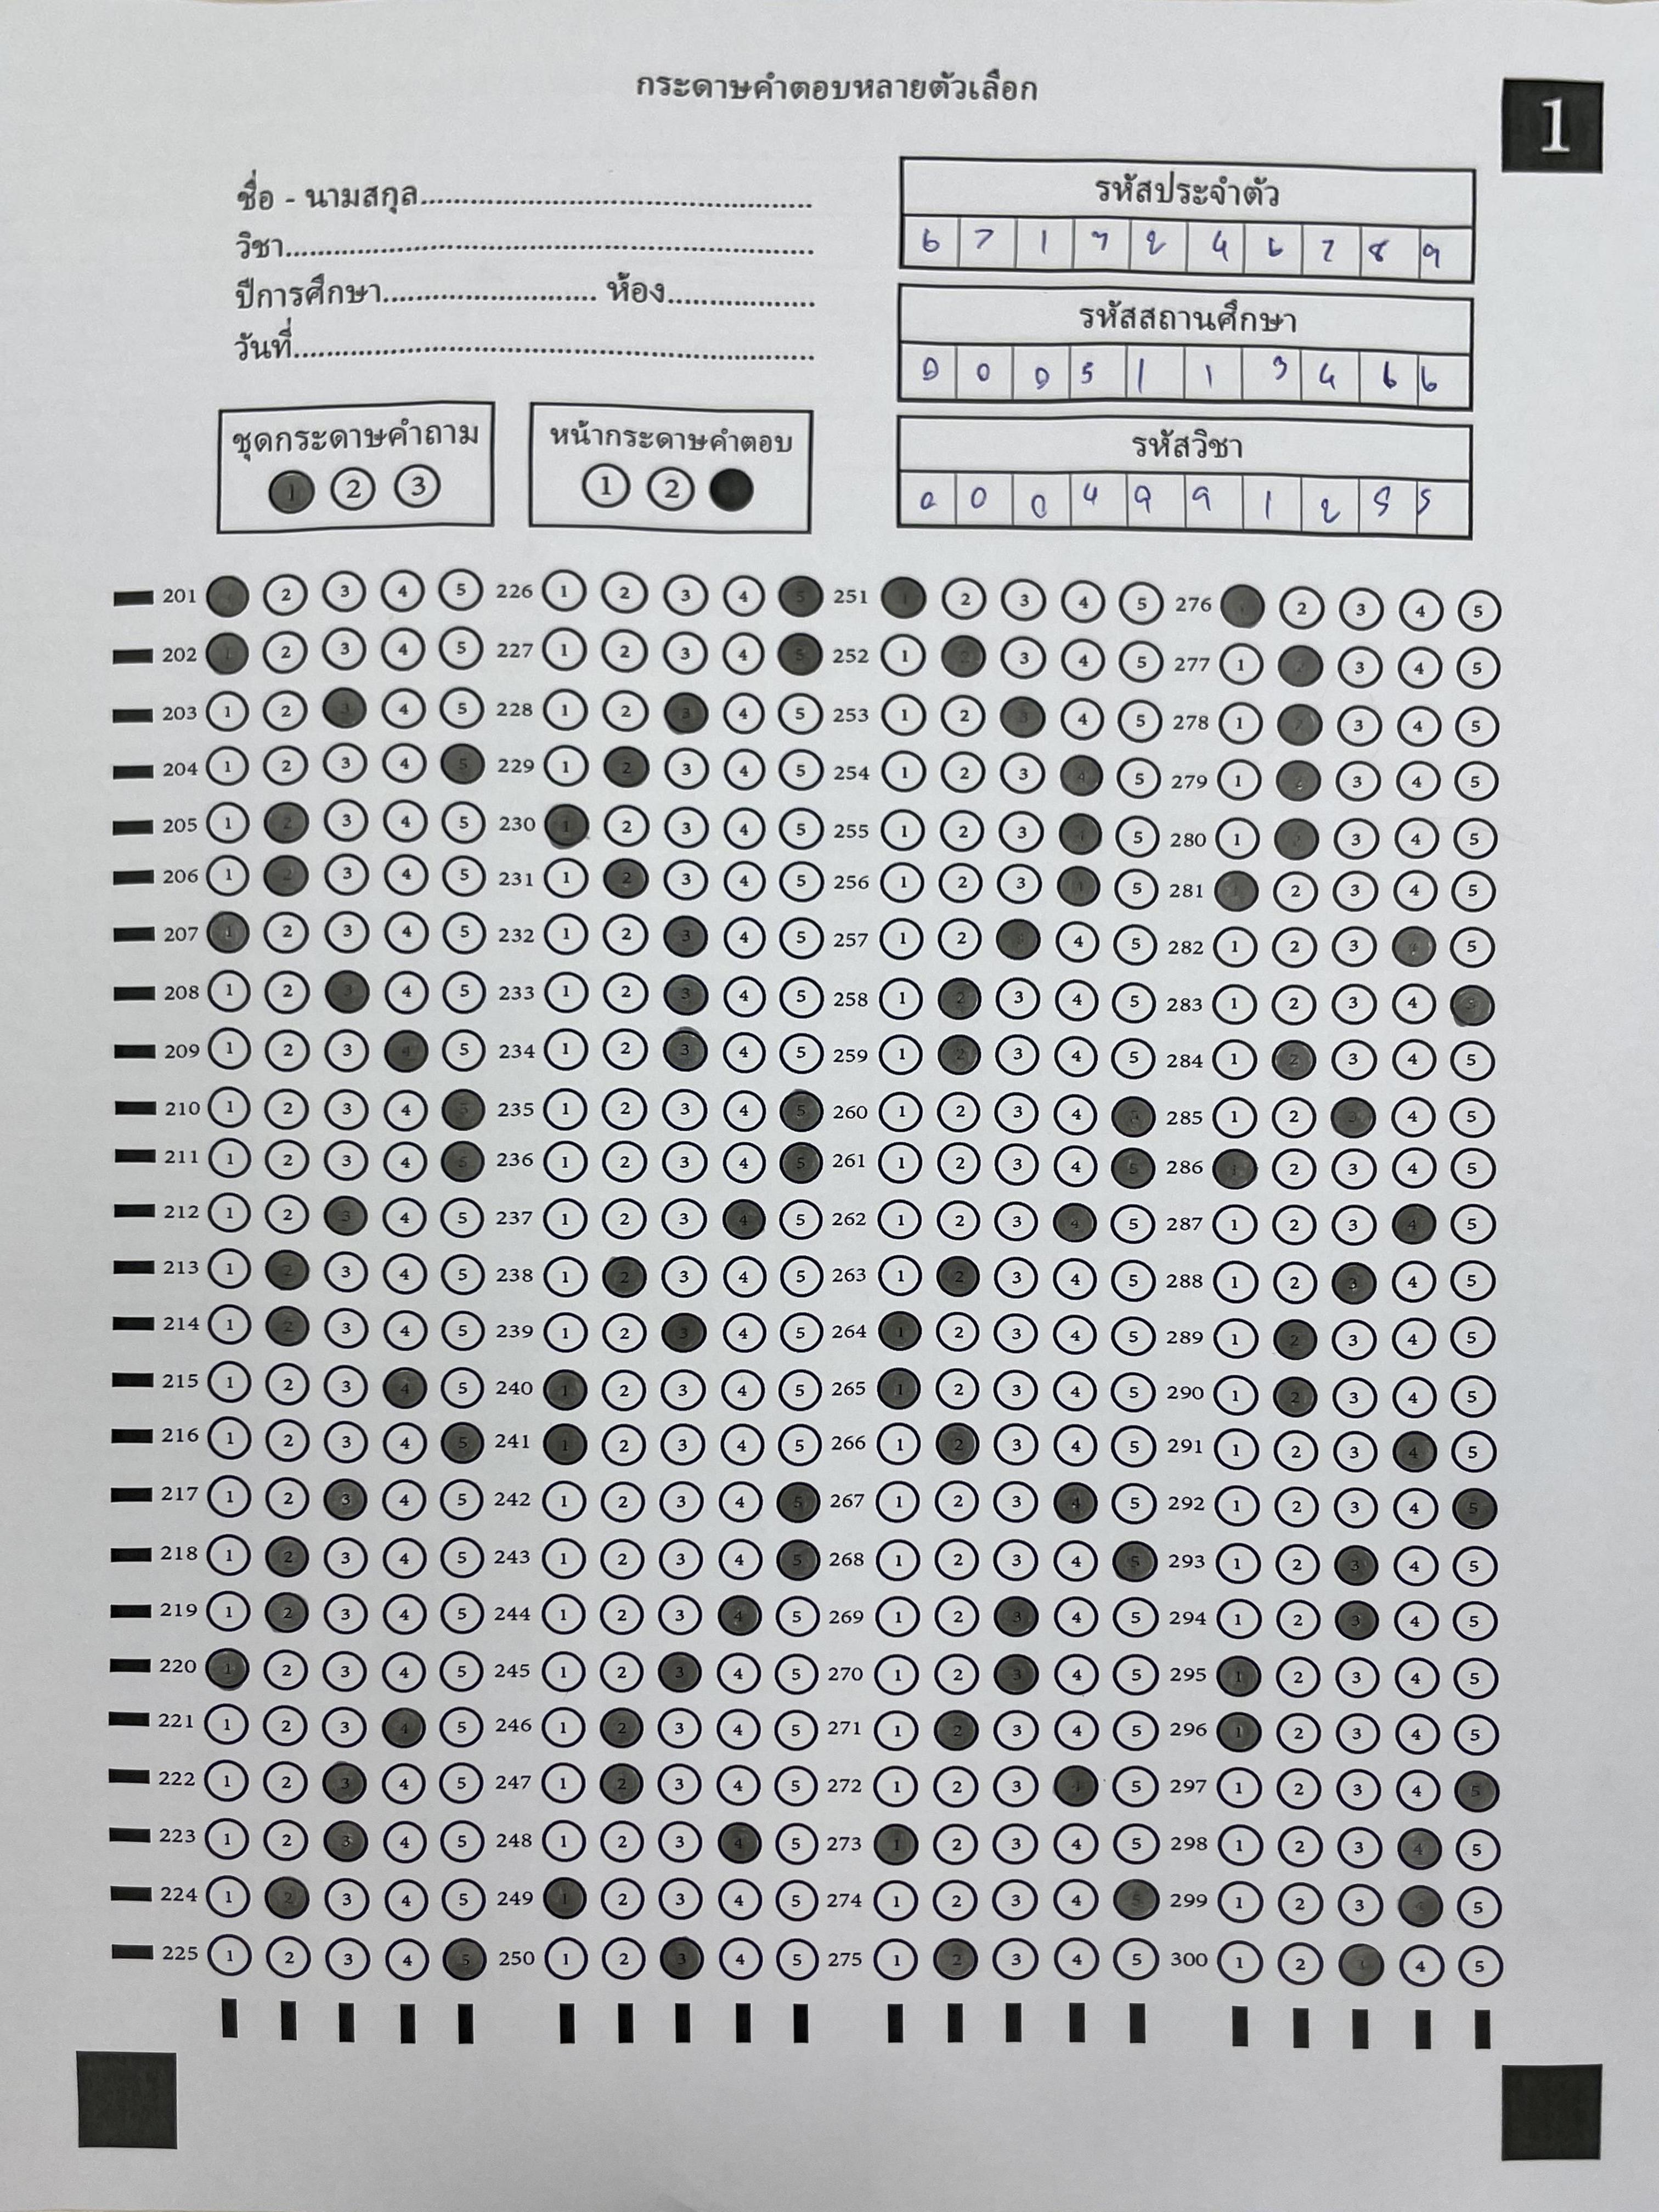 กระดาษคำตอบหลายตัวเลือก
1
ชื่อ - นามสกุล
วิชา
ปีการศึกษา ห้อง
วันที่
รหัสประจำตัว
6 7 1 7 2 4 6 7 8 9
รหัสสถานศึกษา
0 0 0 5 1 1 3 4 6 6
รหัสวิชา
0 0 0 4 9 9 1 2 5 5
ชุดกระดาษคำถาม
1 2 3
หน้ากระดาษคำตอบ
1 2
201 2 3 4 5 226 1 2 3 4 5 251 1 2 3 4 5 276 1 2 3 4 5
202 1 2 3 4 5 227 1 2 3 4 5 252 1 2 3 4 5 277 1 2 3 4 5
203 1 2 3 4 5 228 1 2 3 4 5 253 1 2 3 4 5 278 1 2 3 4 5
204 1 2 3 4 5 229 1 2 3 4 5 254 1 2 3 4 5 279 1 2 3 4 5
205 1 2 3 4 5 230 1 2 3 4 5 255 1 2 3 4 5 280 1 2 3 4 5
206 1 2 3 4 5 231 1 2 3 4 5 256 1 2 3 4 5 281 1 2 3 4 5
207 1 2 3 4 5 232 1 2 3 4 5 257 1 2 3 4 5 282 1 2 3 4 5
208 1 2 3 4 5 233 1 2 3 4 5 258 1 2 3 4 5 283 1 2 3 4 5
209 1 2 3 4 5 234 1 2 3 4 5 259 1 2 3 4 5 284 1 2 3 4 5
210 1 2 3 4 5 235 1 2 3 4 5 260 1 2 3 4 5 285 1 2 3 4 5
211 1 2 3 4 5 236 1 2 3 4 5 261 1 2 3 4 5 286 1 2 3 4 5
212 1 2 3 4 5 237 1 2 3 4 5 262 1 2 3 4 5 287 1 2 3 4 5
213 1 2 3 4 5 238 1 2 3 4 5 263 1 2 3 4 5 288 1 2 3 4 5
214 1 2 3 4 5 239 1 2 3 4 5 264 1 2 3 4 5 289 1 2 3 4 5
215 1 2 3 4 5 240 1 2 3 4 5 265 1 2 3 4 5 290 1 2 3 4 5
216 1 2 3 4 5 241 1 2 3 4 5 266 1 2 3 4 5 291 1 2 3 4 5
217 1 2 3 4 5 242 1 2 3 4 5 267 1 2 3 4 5 292 1 2 3 4 5
218 1 2 3 4 5 243 1 2 3 4 5 268 1 2 3 4 5 293 1 2 3 4 5
219 1 2 3 4 5 244 1 2 3 4 5 269 1 2 3 4 5 294 1 2 3 4 5
220 1 2 3 4 5 245 1 2 3 4 5 270 1 2 3 4 5 295 1 2 3 4 5
221 1 2 3 4 5 246 1 2 3 4 5 271 1 2 3 4 5 296 1 2 3 4 5
222 1 2 3 4 5 247 1 2 3 4 5 272 1 2 3 4 5 297 1 2 3 4 5
223 1 2 3 4 5 248 1 2 3 4 5 273 1 2 3 4 5 298 1 2 3 4 5
224 1 2 3 4 5 249 1 2 3 4 5 274 1 2 3 4 5 299 1 2 3 4 5
225 1 2 3 4 5 250 1 2 3 4 5 275 1 2 3 4 5 300 1 2 3 4 5